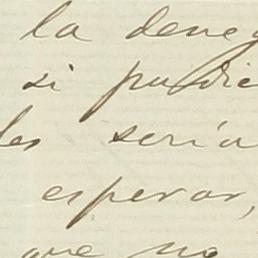 la deneg
si pudie
les sería
esperar,
que no